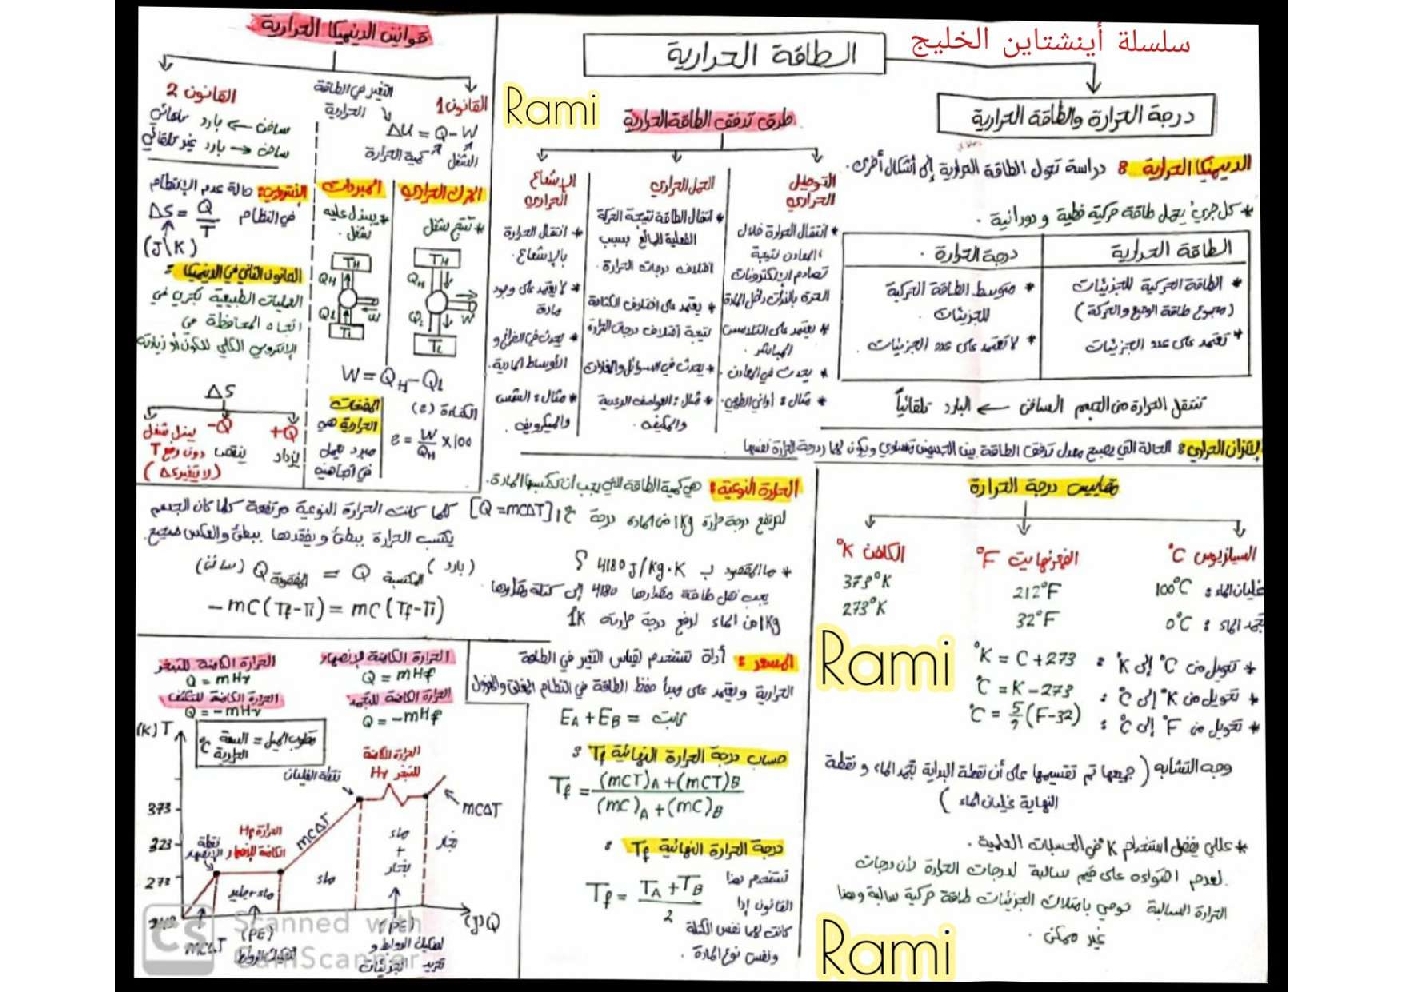 سلسلة أينشتاين الخليج
الطاقة الحرارية
درجة الحرارة والطاقة الحرارية
الديناميكا الحرارية : دراسة تحول الطاقة الحرارية إلى أشكال أخرى.
* كل جزيء يحمل طاقة حركية خطية و دورانية .
الطاقة الحرارية
درجة الحرارة .
* الطاقة الحركية للجزيئات
(مجموع طاقة الوضع والحركة)
* تعتمد على عدد الجزيئات
* متوسط الطاقة الحركية
للجزيئات.
* لا تعتمد على عدد الجزيئات .
تنتقل الحرارة من الجسم الساخن ← البارد تلقائياً
الإتزان الحراري : الحالة التي يصبح معدل تدفق الطاقة بين الجسمين متساوي ويكون لهما درجة الحرارة نفسها
مقاييس درجة الحرارة
السيلزيوس °C
الفهرنهايت °F
الكلفن °K
غليان الماء : 100°C
212°F
373°K
تجمد الماء : 0°C
32°F
273°K
* تحويل من °C إلى °K : °K = C+273
* تحويل من °K إلى °C : °C = K-273
* تحويل من °F إلى °C : °C = 5/9 (F-32)
وجه التشابه ( جميعها تم تقسيمها على أن نقطة البداية تجمد الماء و نقطة
النهاية غليان الماء )
* عللي يفضل استخدام K في الحسابات العلمية .
لعدم احتوائه على قيم سالبة لدرجات الحرارة لأن درجات
الحرارة السالبة توحي بامتلاك الجزيئات طاقة حركية سالبة وهذا
غير ممكن .
Rami
طرق تدفق الطاقة الحرارية
التوصيل
الحراري
* انتقال الحرارة خلال
المعادن نتيجة
تصادم الإلكترونات
الحرة بالذرات داخل المادة
* يعتمد على التلامس
المباشر
* يحدث في المعادن .
* مثال : أواني الطهي.
الحمل الحراري
* انتقال الطاقة نتيجة الحركة
الفعلية للمائع بسبب
اختلاف درجات الحرارة .
* يعتمد على اختلاف الكثافة
نتيجة اختلاف درجات الحرارة
* يحدث في السوائل والغازات
* مثال : العواصف الرعدية
والمكيف .
الإشعاع
الحراري
* انتقال الحرارة
بالإشعاع.
* لا يعتمد على وجود
مادة
* يحدث في الفراغ و
الأوساط المادية.
* مثال : الشمس
والميكرويف .
الحرارة النوعية : هي كمية الطاقة التي يجب أن تكتسبها المادة.
لترتفع درجة حرارة 1Kg من المادة درجة [Q = mCΔT]
* ما المقصود بـ 4180 J/Kg.K ؟
يجب نقل طاقة مقدارها 4180 إلى كتلة مقدارها
1Kg من الماء لرفع درجة حرارته 1K
المسعر : أداة تستخدم لقياس التغير في الطاقة
الحرارية و يعتمد على مبدأ حفظ الطاقة في النظام المغلق والمعزول
EA + EB = ثابت
حساب درجة الحرارة النهائية Tf :
Tf = (mCT)A + (mCT)B / (mC)A + (mC)B
درجة الحرارة النهائية Tf :
Tf = TA + TB / 2
تستخدم هذا
القانون إذا
كانت لهما نفس الكتلة
ونفس نوع المادة .
قوانين الديناميكا الحرارية
القانون 1
التغير في الطاقة
الحرارية
ΔU = Q - W
كمية الحرارة
الشغل
القانون 2
ساخن ← بارد تلقائي
ساخن → بارد غير تلقائي
الإنتروبي: حالة عدم الإنتظام
في النظام ΔS = Q/T
(J\K)
القانون الثاني في الديناميكا :
العمليات الطبيعية تجري في
اتجاه المحافظة على
الإنتروبي الكلي للكون أو زيادته
ΔS
+Q
يزداد
-Q
ينقص
يبذل شغل
دون رفع T
(لا يتغير ΔS)
المحرك الحراري
* تنتج شغل
TH
QH
QL
W
TL
المبردات
* يبذل عليه
شغل .
TH
QH
QL
W
TL
W = QH - QL
الكفاءة (e)
e = W/QH x100
المضخات
الحرارية هي
مبرد يعمل
في اتجاهين
كلما كانت الحرارة النوعية مرتفعة كلما كان الجسم
يكتسب الحرارة ببطئ و يفقدها ببطئ والعكس صحيح.
(بارد) المكتسبة Q = المفقودة Q (ساخن)
-mC(Tf-Ti) = mC(Tf-Ti)
الحرارة الكامنة للإنصهار
Q = mHf
الحرارة الكامنة للتجمد
Q = -mHf
الحرارة الكامنة للتبخر
Q = mHv
الحرارة الكامنة للتكثف
Q = -mHv
(K) T
مقلوب الميل = السعة
الحرارية
نقطة الغليان
الحرارة الكامنة
للتبخر Hv
mCΔT
mCΔT
373
323
273
نقطة
الإنصهار
الحرارة Hf
الكامنة للإنصهار
ماء+جليد
ماء
ماء
+
بخار
بخار
(J) Q
mCΔT
(PE)
(PE)
لتفكيك الروابط و
Scanned with
CamScanner
CS
Rami
Rami